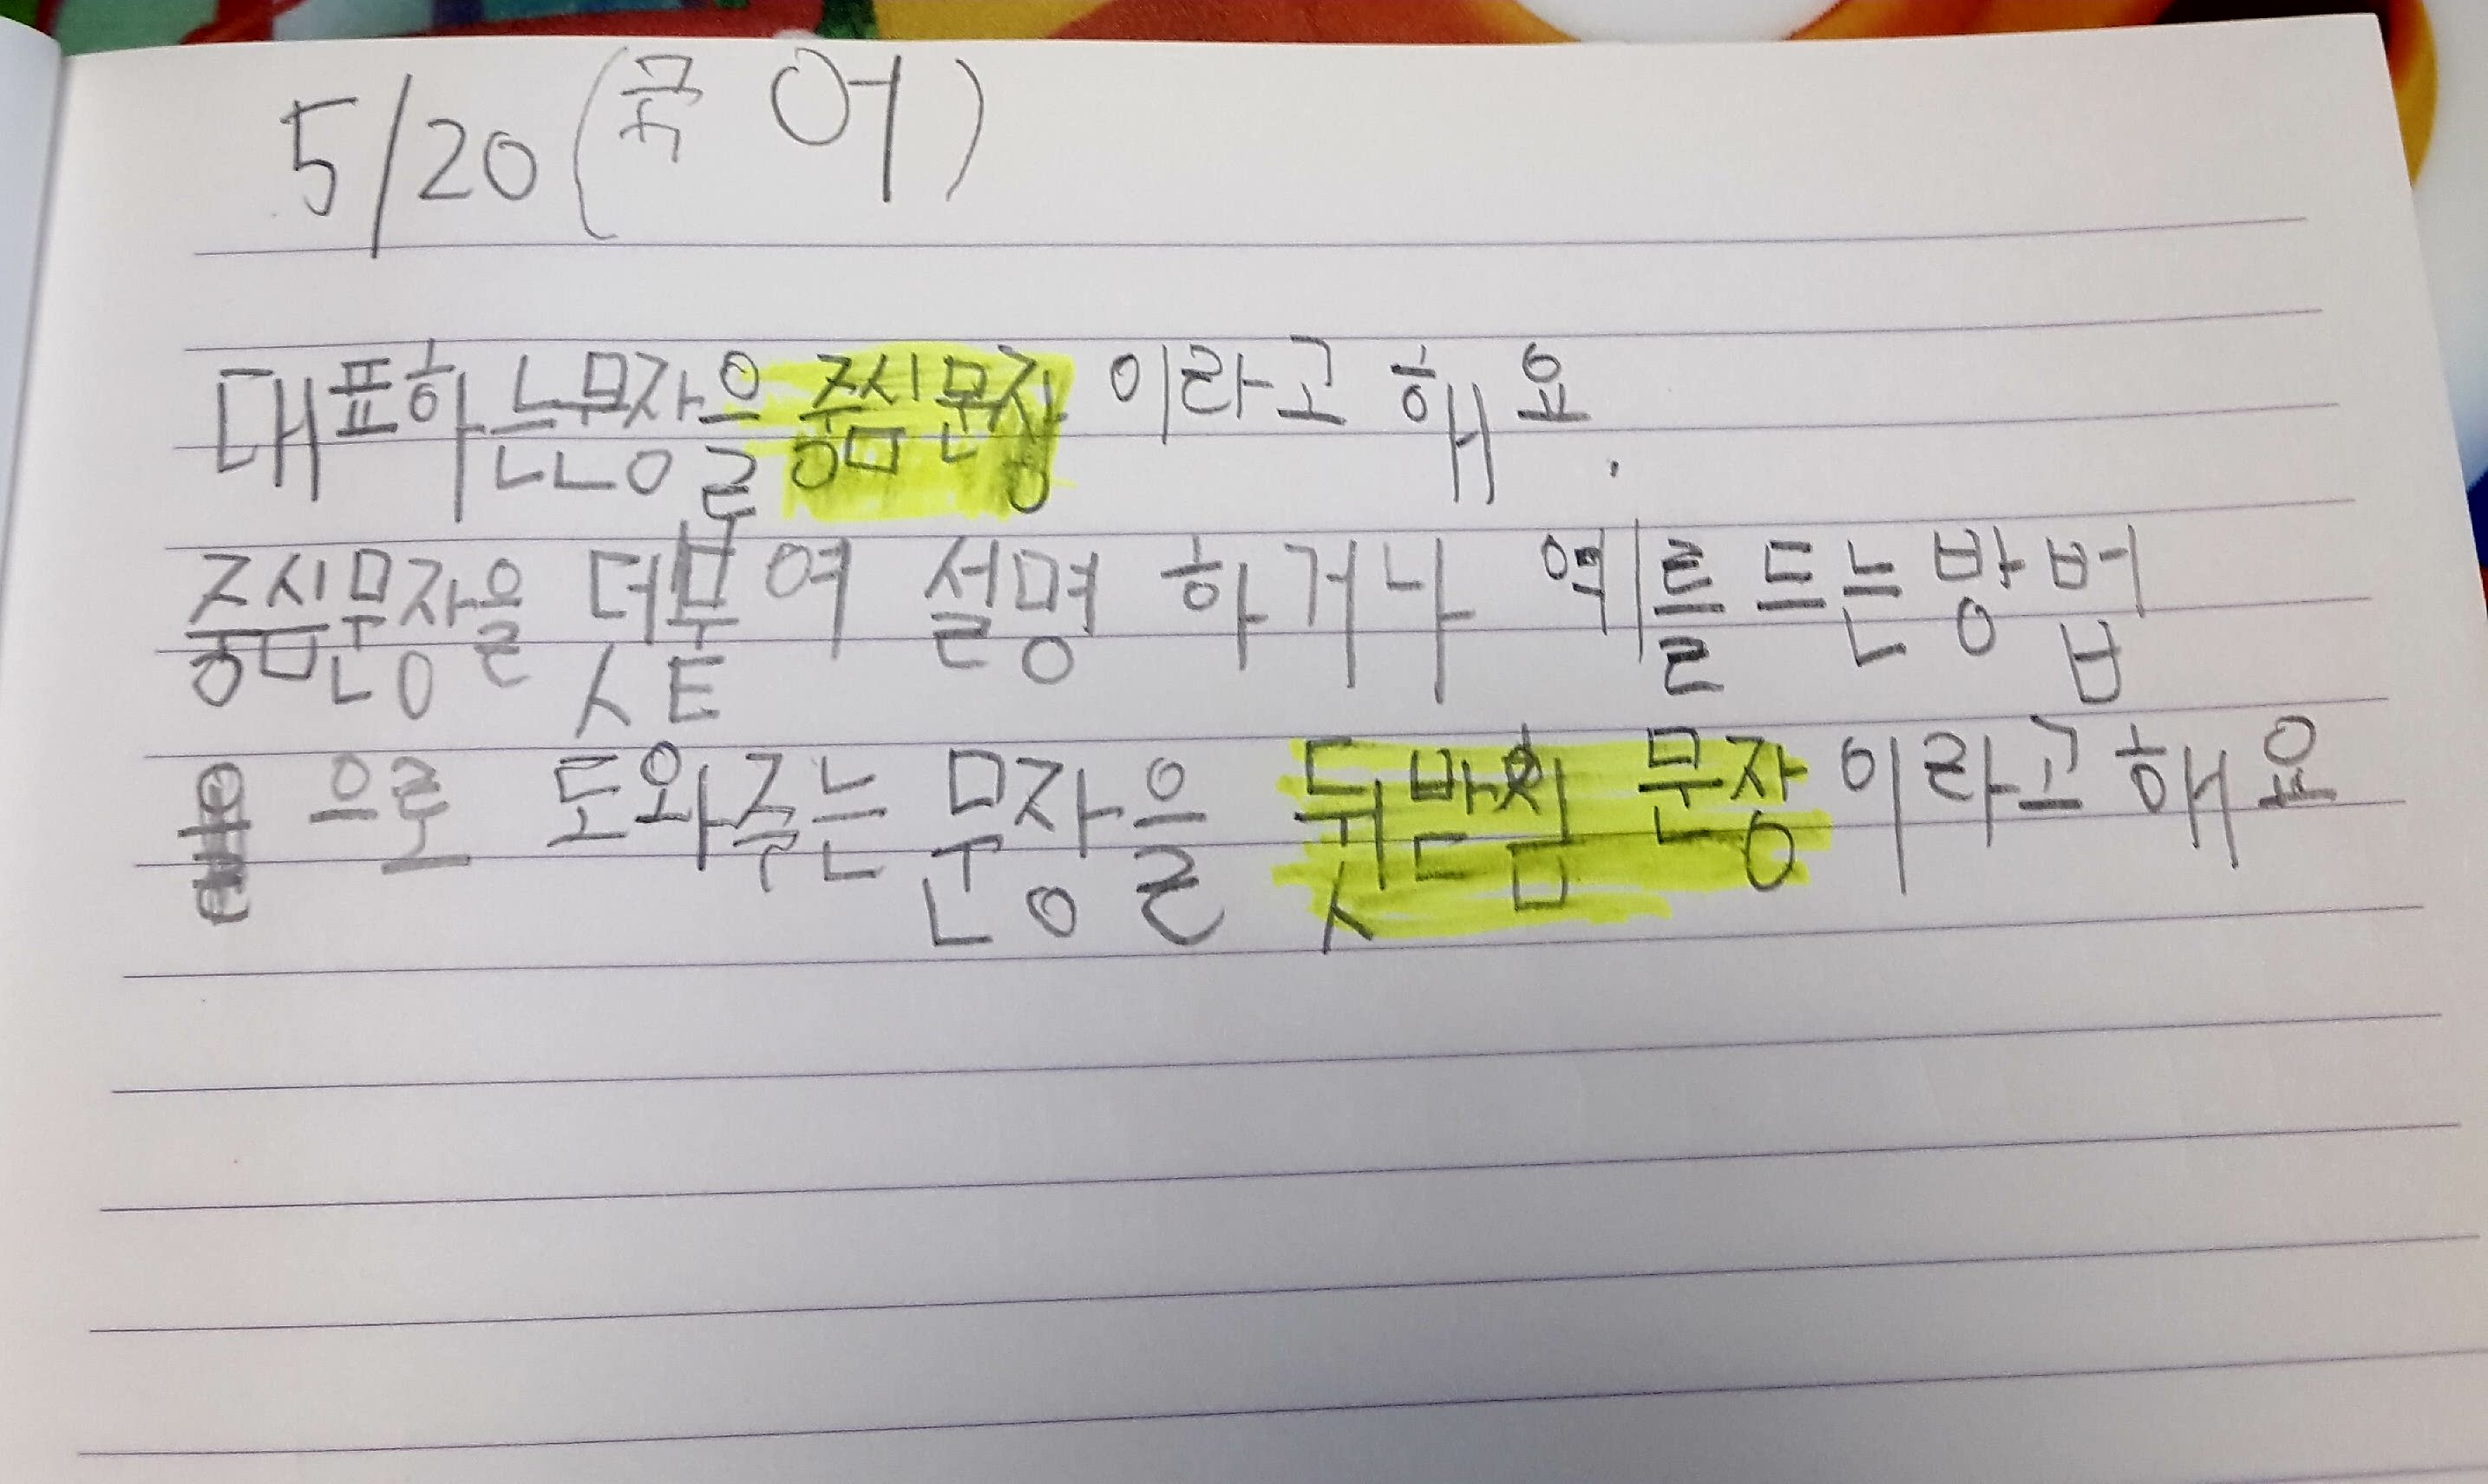 5/20 (국 어)
대표하는문장을 중심문장 이라고 해요.
중심문장을 덧붙여 설명 하거나 예를 드는 방법
으로 도와주는 문장을 뒷받침 문장 이라고 해요